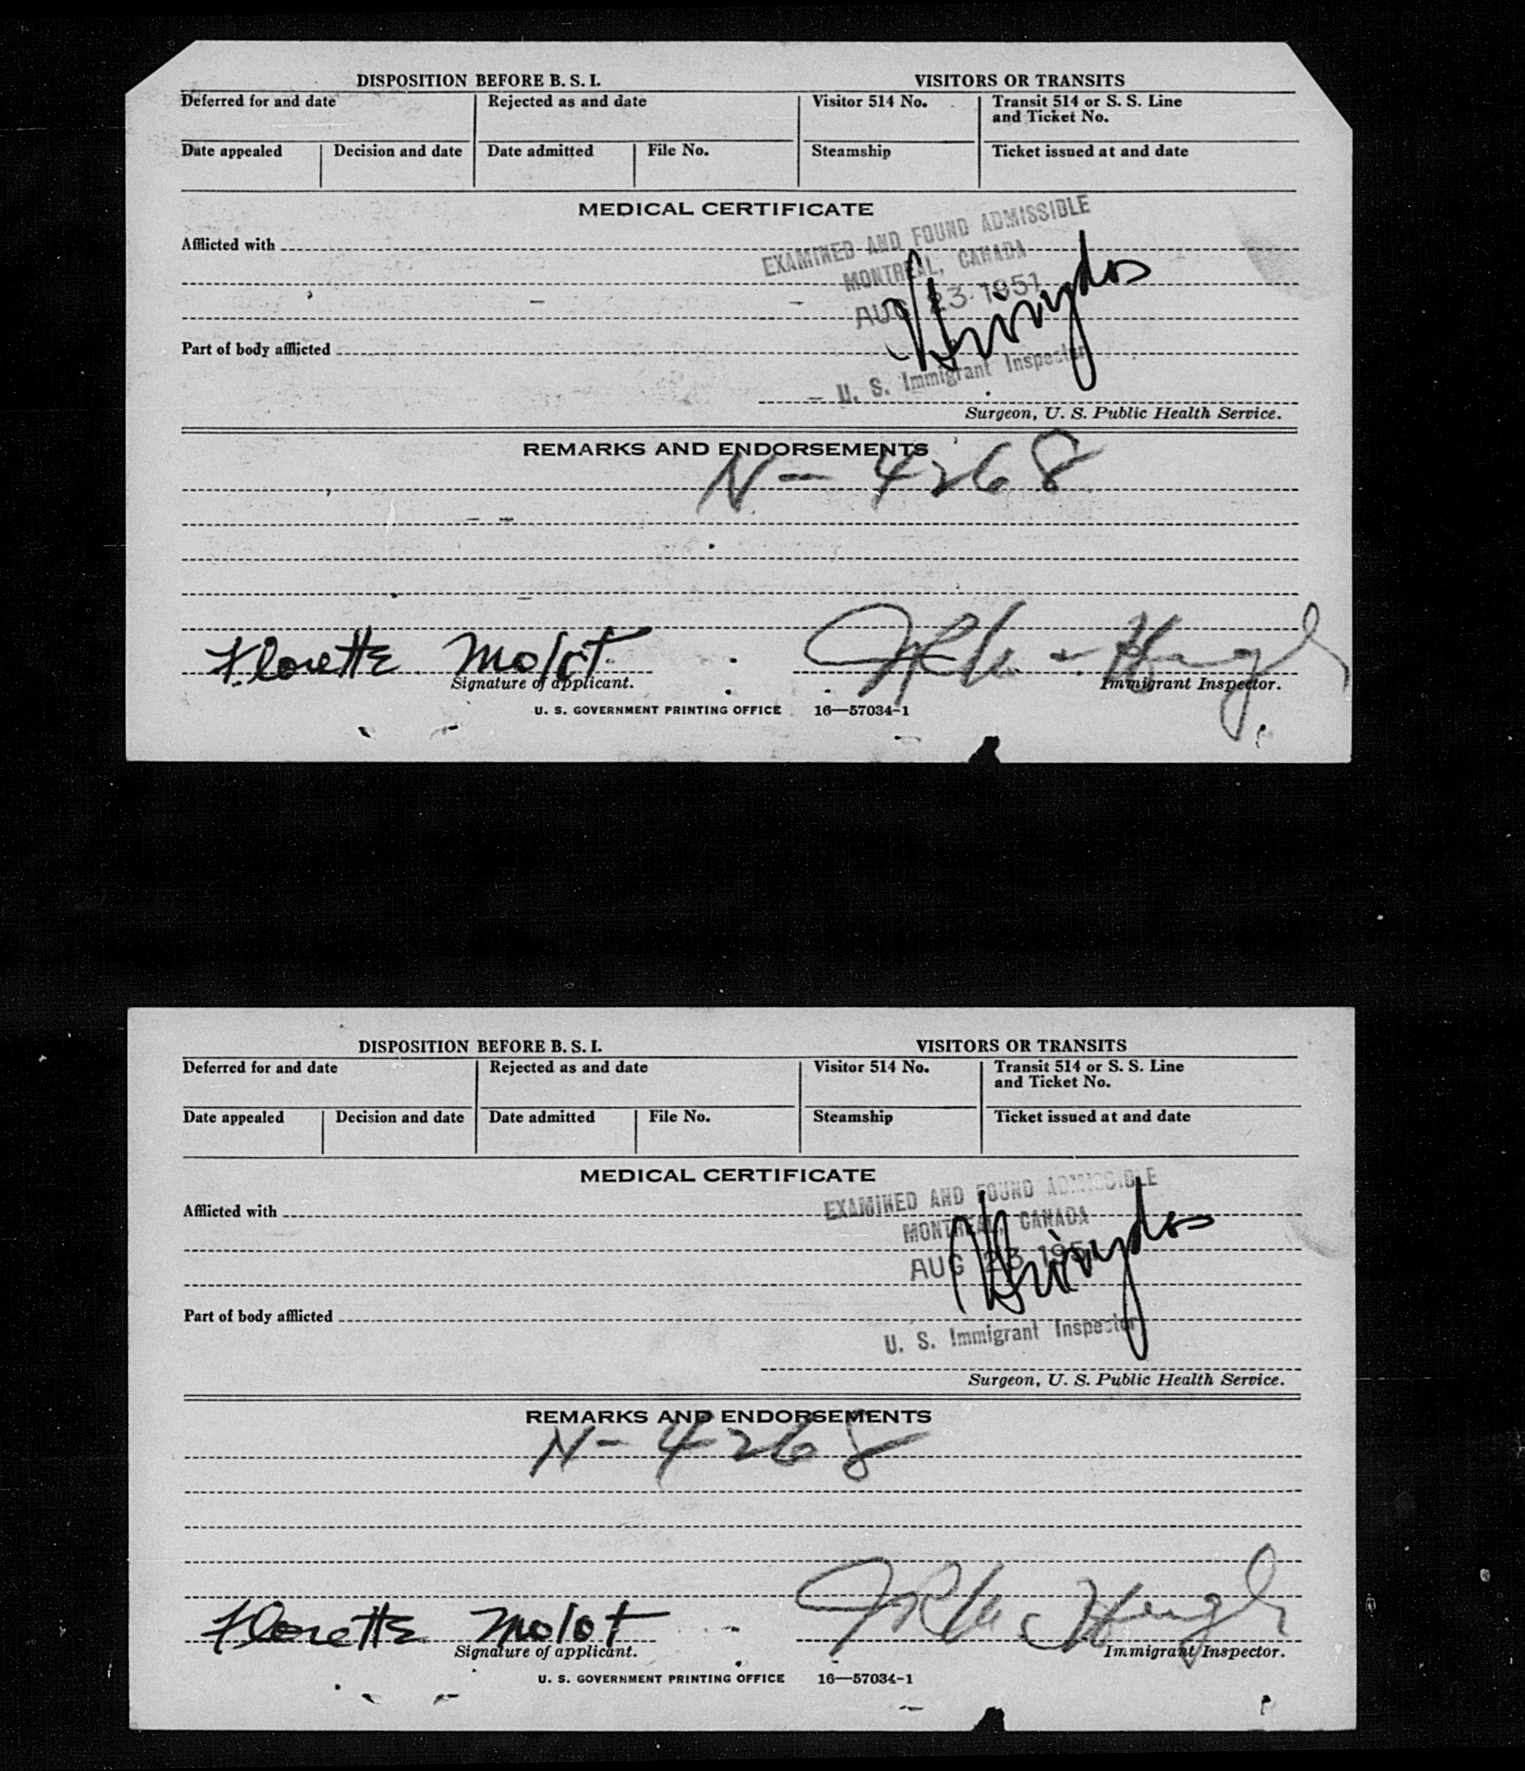 DISPOSITION BEFORE B. S. I. VISITORS OR TRANSITS
Deferred for and date Rejected as and date Visitor 514 No. Transit 514 or S. S. Line
and Ticket No.
Date appealed Decision and date Date admitted File No. Steamship Ticket issued at and date
MEDICAL CERTIFICATE
EXAMINED AND FOUND ADMISSIBLE
Afflicted with
MONTREAL, CANADA
AUG 23 1951
Part of body afflicted
U. S. Immigrant Inspector
Surgeon, U. S. Public Health Service.
REMARKS AND ENDORSEMENTS
N - 4268
Florette Molot
Signature of applicant. Immigrant Inspector.
U. S. GOVERNMENT PRINTING OFFICE 16—57034-1
DISPOSITION BEFORE B. S. I. VISITORS OR TRANSITS
Deferred for and date Rejected as and date Visitor 514 No. Transit 514 or S. S. Line
and Ticket No.
Date appealed Decision and date Date admitted File No. Steamship Ticket issued at and date
MEDICAL CERTIFICATE
EXAMINED AND FOUND ADMISSIBLE
Afflicted with
MONTREAL, CANADA
AUG 23 1951
Part of body afflicted
U. S. Immigrant Inspector
Surgeon, U. S. Public Health Service.
REMARKS AND ENDORSEMENTS
N - 4268
Florette Molot
Signature of applicant. Immigrant Inspector.
U. S. GOVERNMENT PRINTING OFFICE 16—57034-1